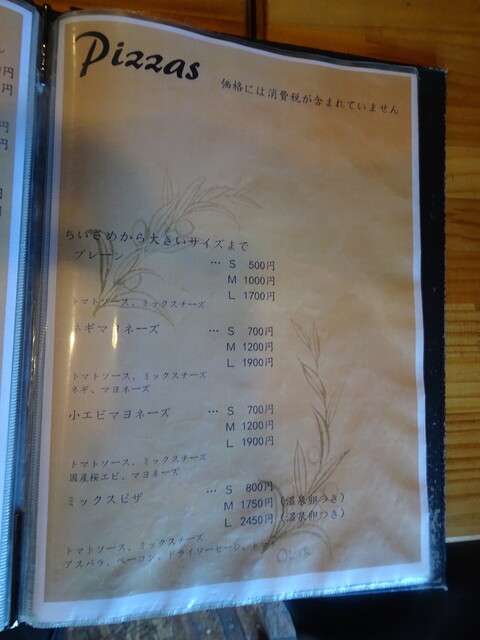 Pizzas
価格には消費税が含まれていません
ちいさめから大きいサイズまで
プレーン … S 500円
M 1000円
L 1700円
トマトソース、ミックスチーズ
ネギマヨネーズ … S 700円
M 1200円
L 1900円
トマトソース、ミックスチーズ
ネギ、マヨネーズ
小エビマヨネーズ … S 700円
M 1200円
L 1900円
トマトソース、ミックスチーズ
国産桜エビ、マヨネーズ
ミックスピザ … S 800円
M 1750円 (温泉卵つき)
L 2450円 (温泉卵つき)
トマトソース、ミックスチーズ
アスパラ、ベーコン、ドライソーセージ、
Olive